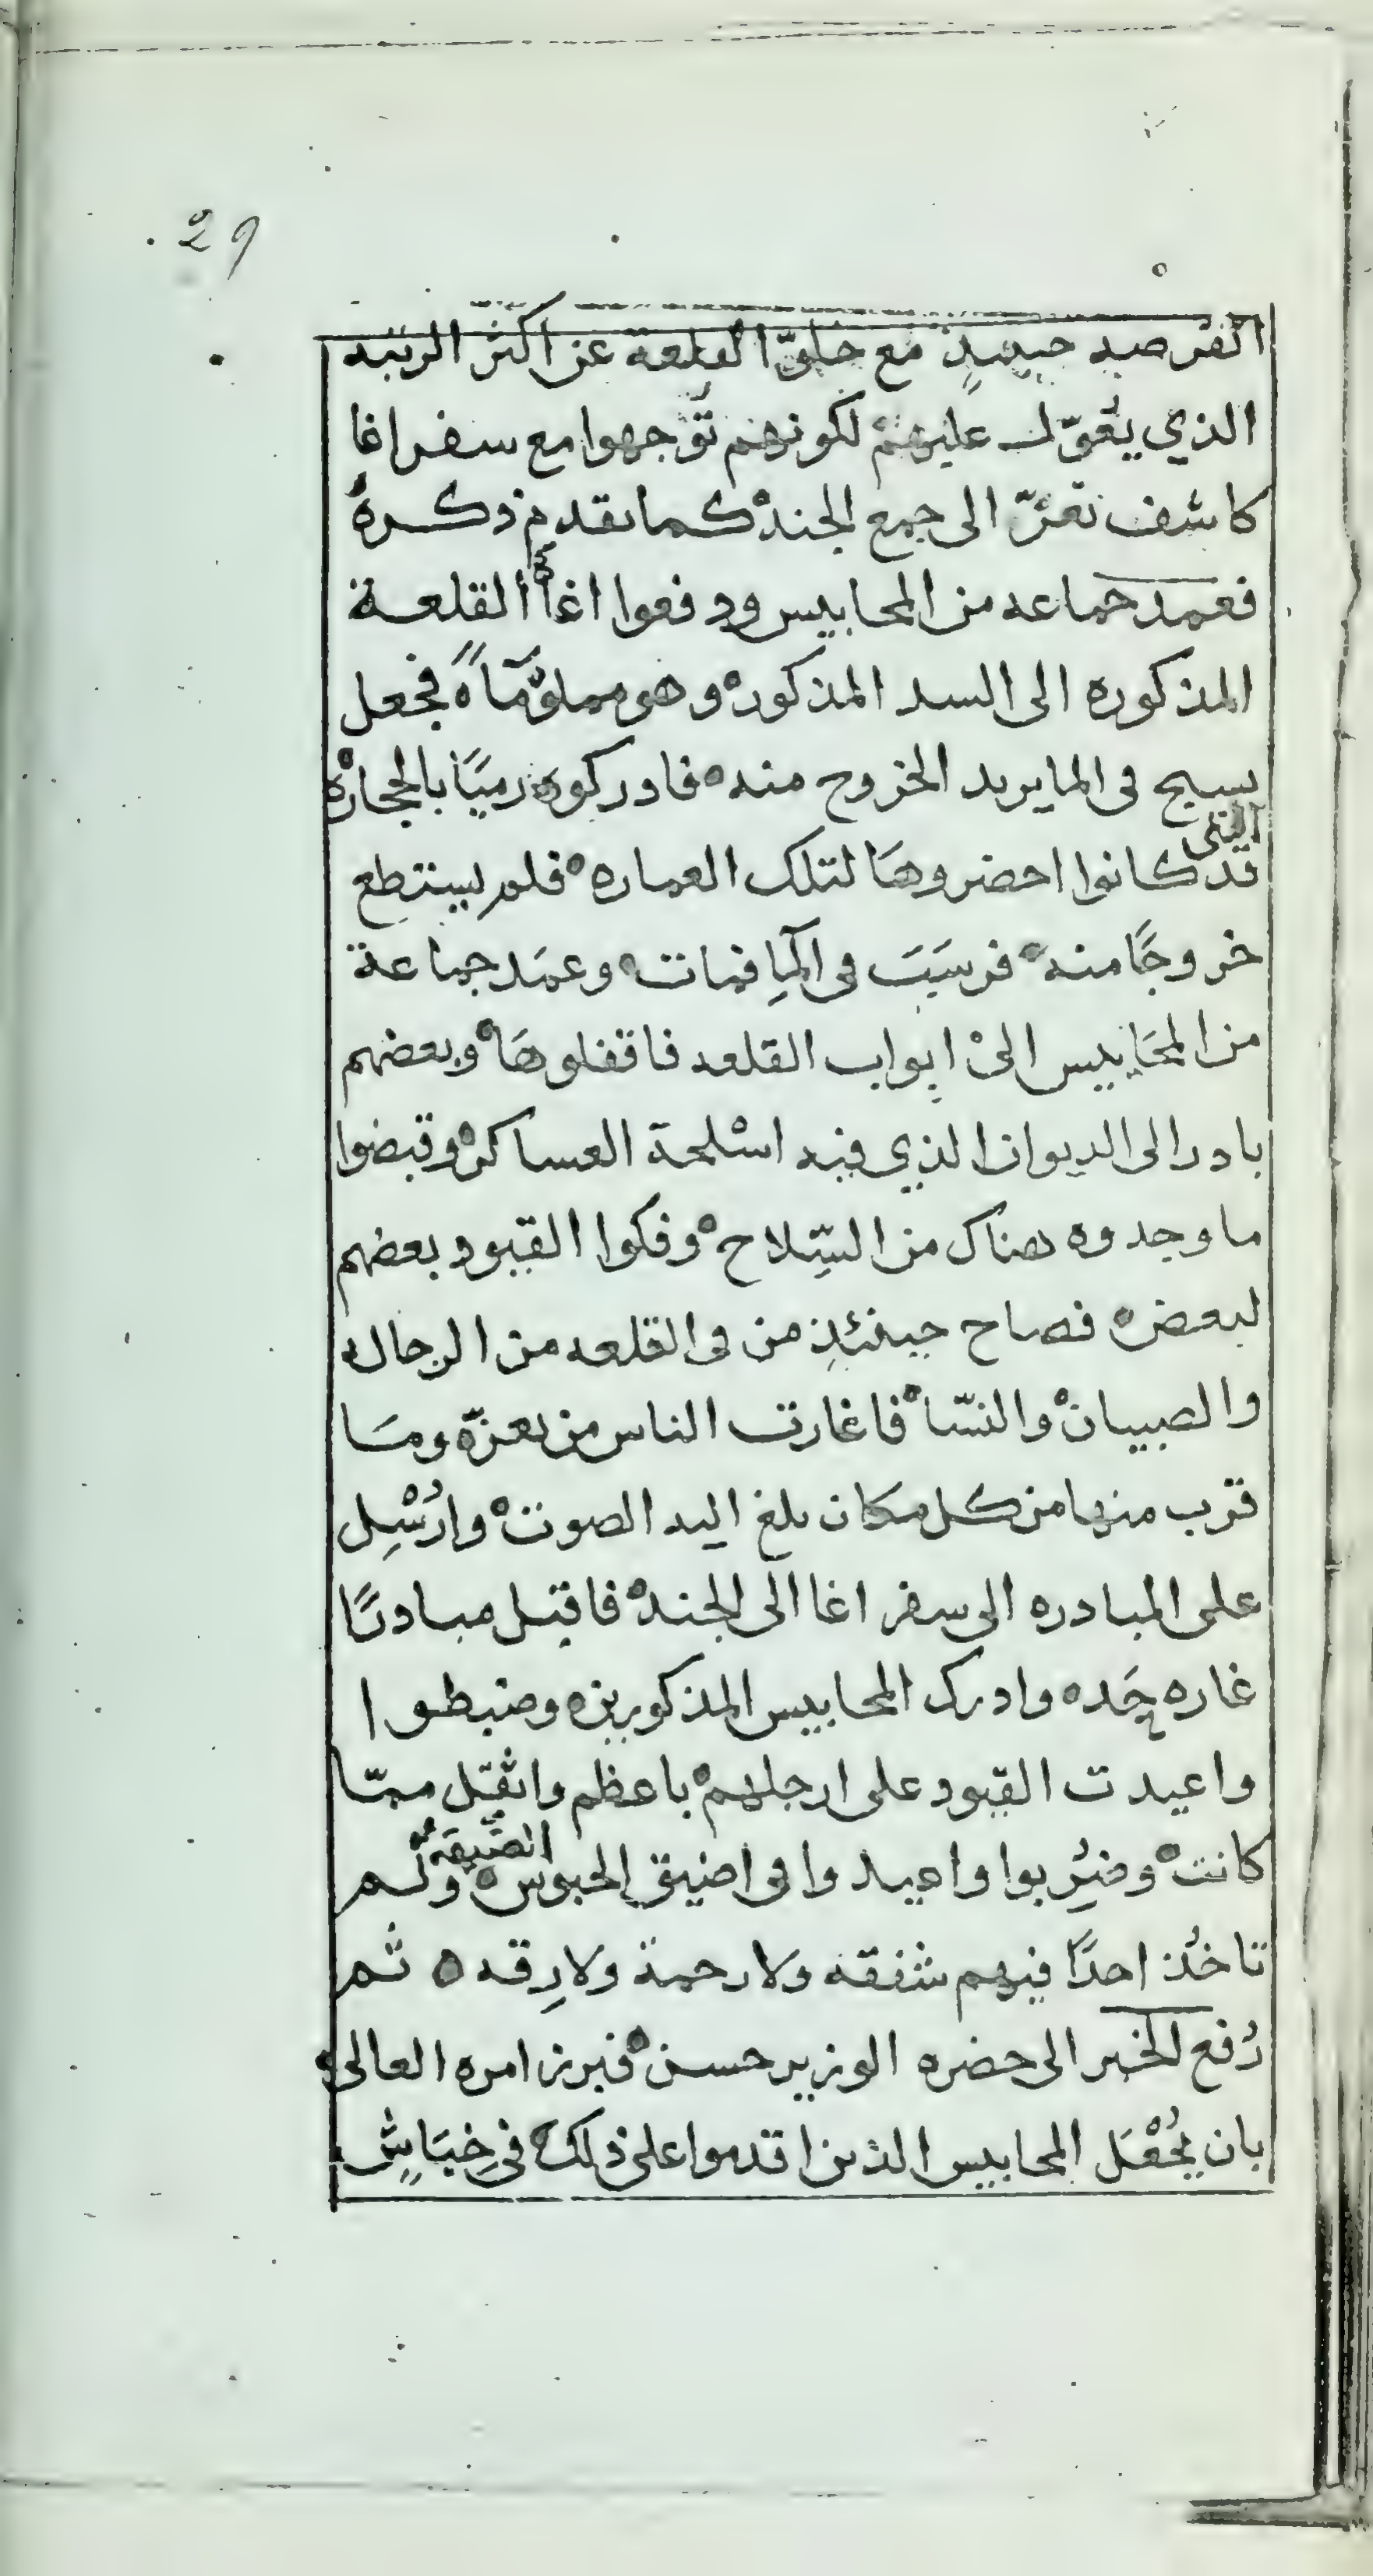 29
الفرصه حينيذٍ مع خلوّ القلعة عن اكثر الرتبه
الذي يعوّل عليهم لكونهم توجهوا مع سفر اغا
كاشف تعزّ الى جمع الجنده كما تقدم ذكره
فعمد جماعه من المحابيس ودفعوا اغا القلعة
المذكوره الى السد المذكوره وهو مملوّ مآءً فجعل
يسبح فى الما يريد الخروج منه فادركوه رميًا بالحجاره
التى
قد كانوا احضروها لتلك العماره فلم يستطع
خروجًا منه فرسَبَ فى المآ فمات وعمد جماعة
من المحابيس الى ابواب القلعه فاقفلوها وبعضهم
بادر الى الديوان الذي فيه اسلحة العساكر وقبضوا
ما وجدوه هناك من السّلاح وفكوا القيود بعضهم
لبعض فصاح حينئذٍ من فى القلعه من الرجال
والصبيان والنسّا فاغارت الناس من تعزّ وما
قرب منها من كل مكان بلغ اليه الصوت وارُسْلِ
على المبادره الى سفر اغا الى الجند فاقبل مبادرًا
غاره جَده وادرك المحابيس المذكورين وضبطوا
واعيدت القيود على ارجلهم باعظم واثقل ممّا
كانت وضُرِبوا واعيدوا فى اضيق الحبوس الضيقه ولم
تاخُذ احدًا فيهم شفقه ولا رحمة ولا رِقه ثم
رُفع الخبر الى حضره الوزير حسن فبرز امره العالى
بان يُجْعَل المحابيس الذين اقدموا على ذلك فى خِيَاشٍ